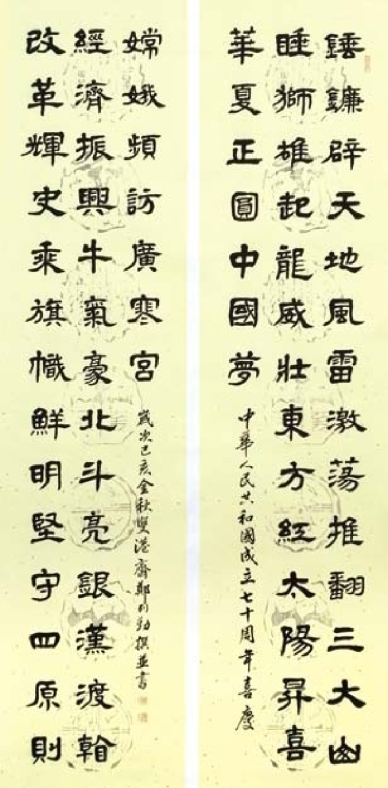 錘鐮辟天地風雷激蕩推翻三大山
睡獅雄起龍威壯東方紅太陽昇喜
華夏正圓中國夢
中華人民共和國成立七十周年喜慶
改革輝史乘旗幟鮮明堅守四原則
經濟振興牛氣豪北斗亮銀漢渡翰
嫦娥頻訪廣寒宮
歲次己亥金秋雙港齋鄭勤撰並書